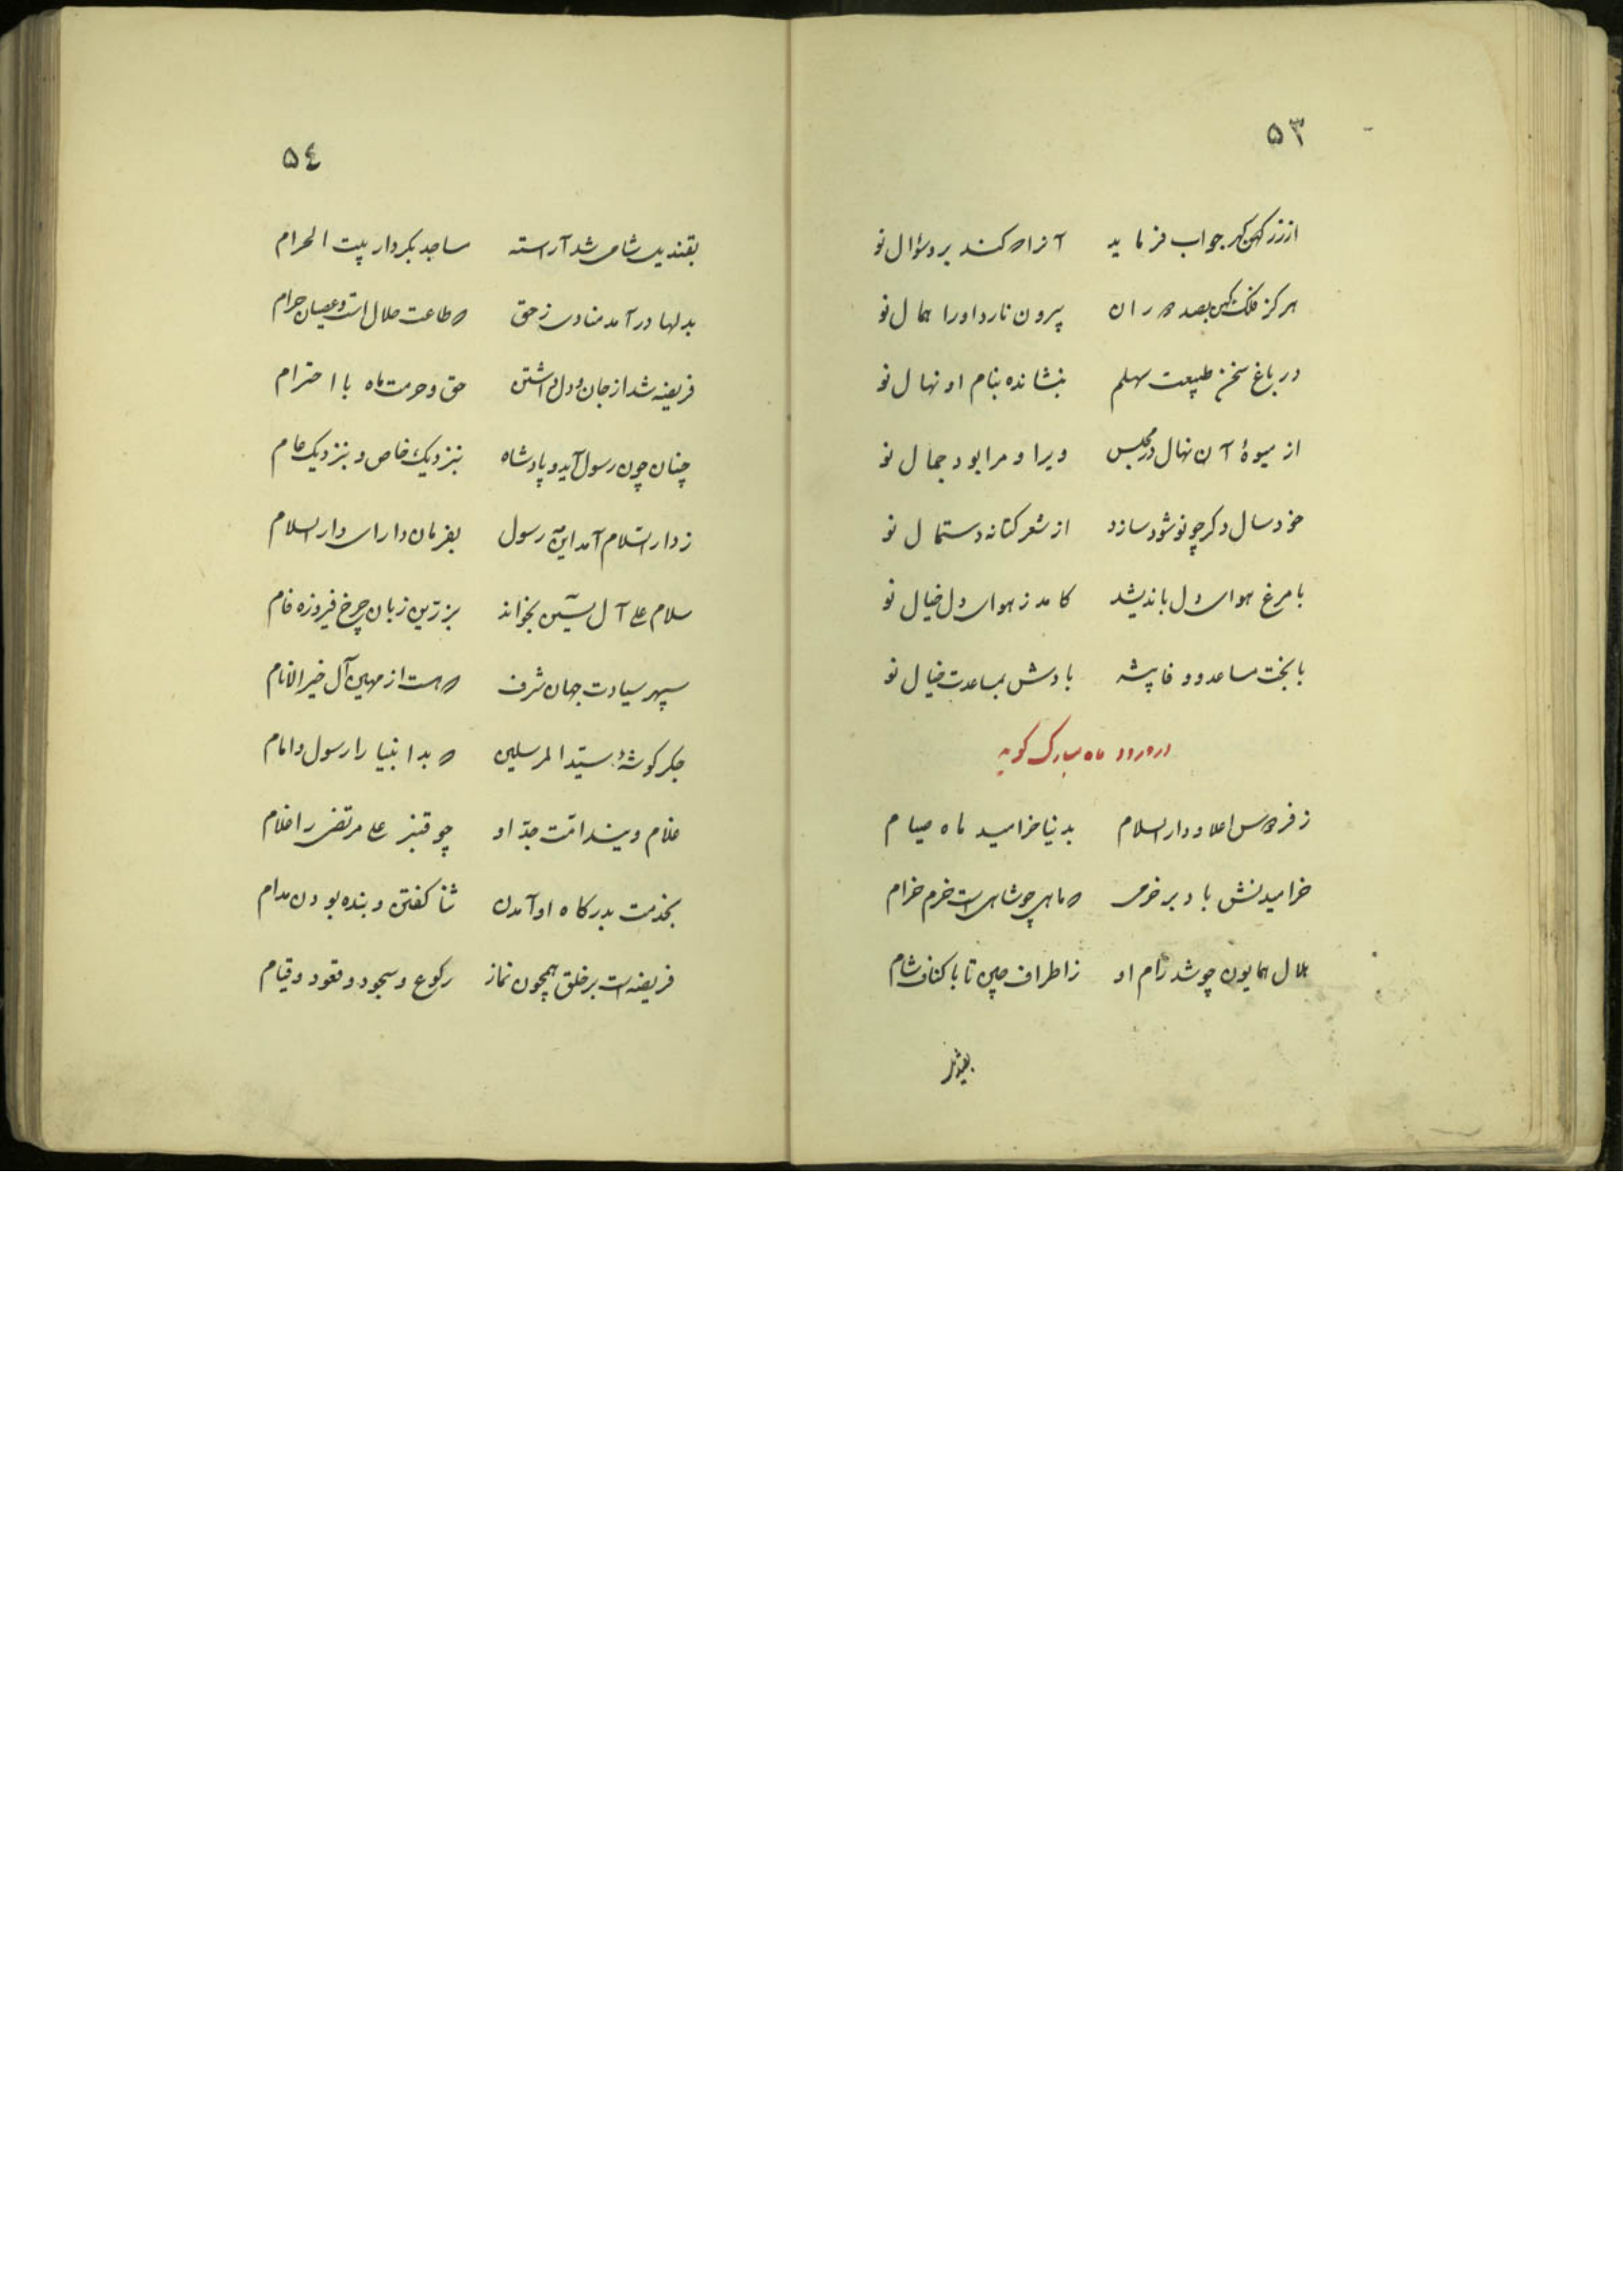 ۵۳
از زر کهن کهر جواب فرماید آنرا که کند برو سؤال نو
هرگز فلک کهن بصد دوران بیرون نارد او را همال نو
در باغ سخن طبیعت سهلم بنشانده بنام او نهال نو
از میوهٔ آن نهال در مجلس ویرا و مرا بود جمال نو
خود سال دکر چو نو شود سازد از شعر کتانه دستمال نو
با مرغ هوای دل باندیشد کامد ز هوای دل خیال نو
با بخت مساعد و وفا پیشه بادش بمساعدت خیال نو
در ورود ماه مبارک کوید
ز فردوس اعلا و دارالسلام بدنیا خرامید ماه صیام
خرامیدنش باد بر خرمی که ماهی چو شاهی است خرم خرام
هلال همایون چو شد رام او ز اطراف چین تا باکناف شام
۵٤
بقندیل شامی شد آراسته مساجد بکردار بیت الحرام
بدلها در آمد منادی ز حق که طاعت حلال است و عصیان حرام
فریضه شد از جان و دل داشتن حق و حرمت ماه با احترام
چنان چون رسول آید و پادشاه بنزدیک خاص و بنزدیک عام
ز دار السلام آمد این رسول بفرمان دارای دار السلام
سلام علی آل یسین بخواند بزرین زبان چرخ فیروزه فام
سپهر سیادت جهان شرف که هست از مهین آل خیر الانام
جکر کوشهٔ سید المرسلین که بد انبیا را رسول و امام
غلام ویند امت جدّ او چو قنبر علی مرتضی را غلام
بخدمت بدرکاه او آمدن ثنا کفتن و بنده بودن مدام
فریضه است بر خلق همچون نماز رکوع و سجود و قعود و قیام